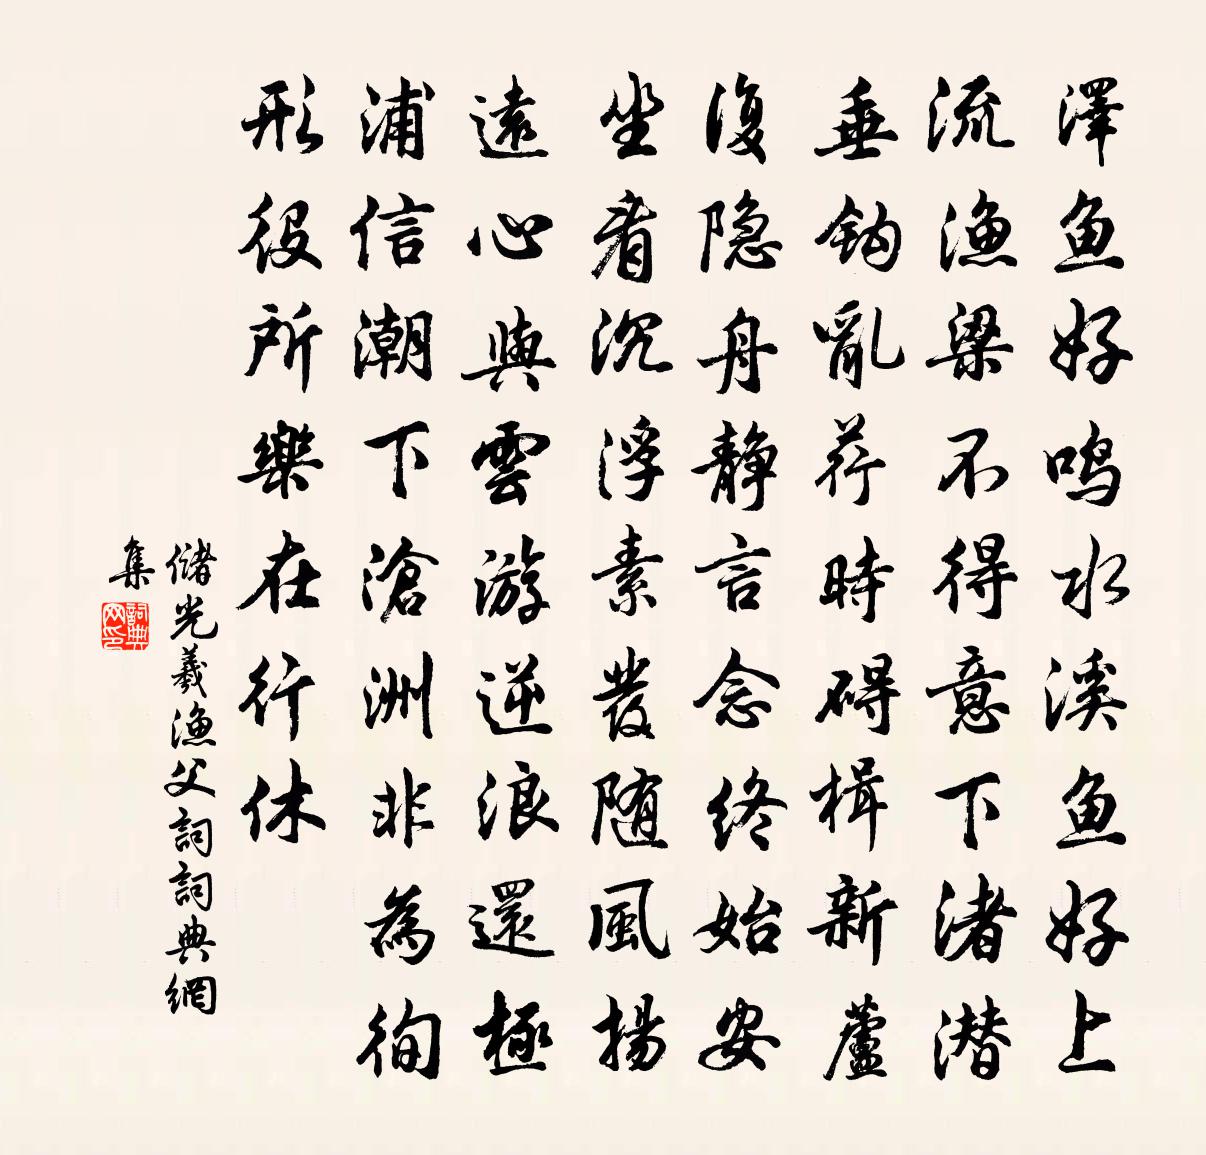 澤鱼好鸣水溪鱼好上
流漁梁不得意下渚潜
垂鈎亂荇時碍楫新蘆
復隐舟静言念终始安
坐看沉浮素發随風揚
遠心與雲游逆浪還極
浦信潮下滄洲非為徇
形役所樂在行休
儲光羲漁父詞詞典網
集
詞典网印